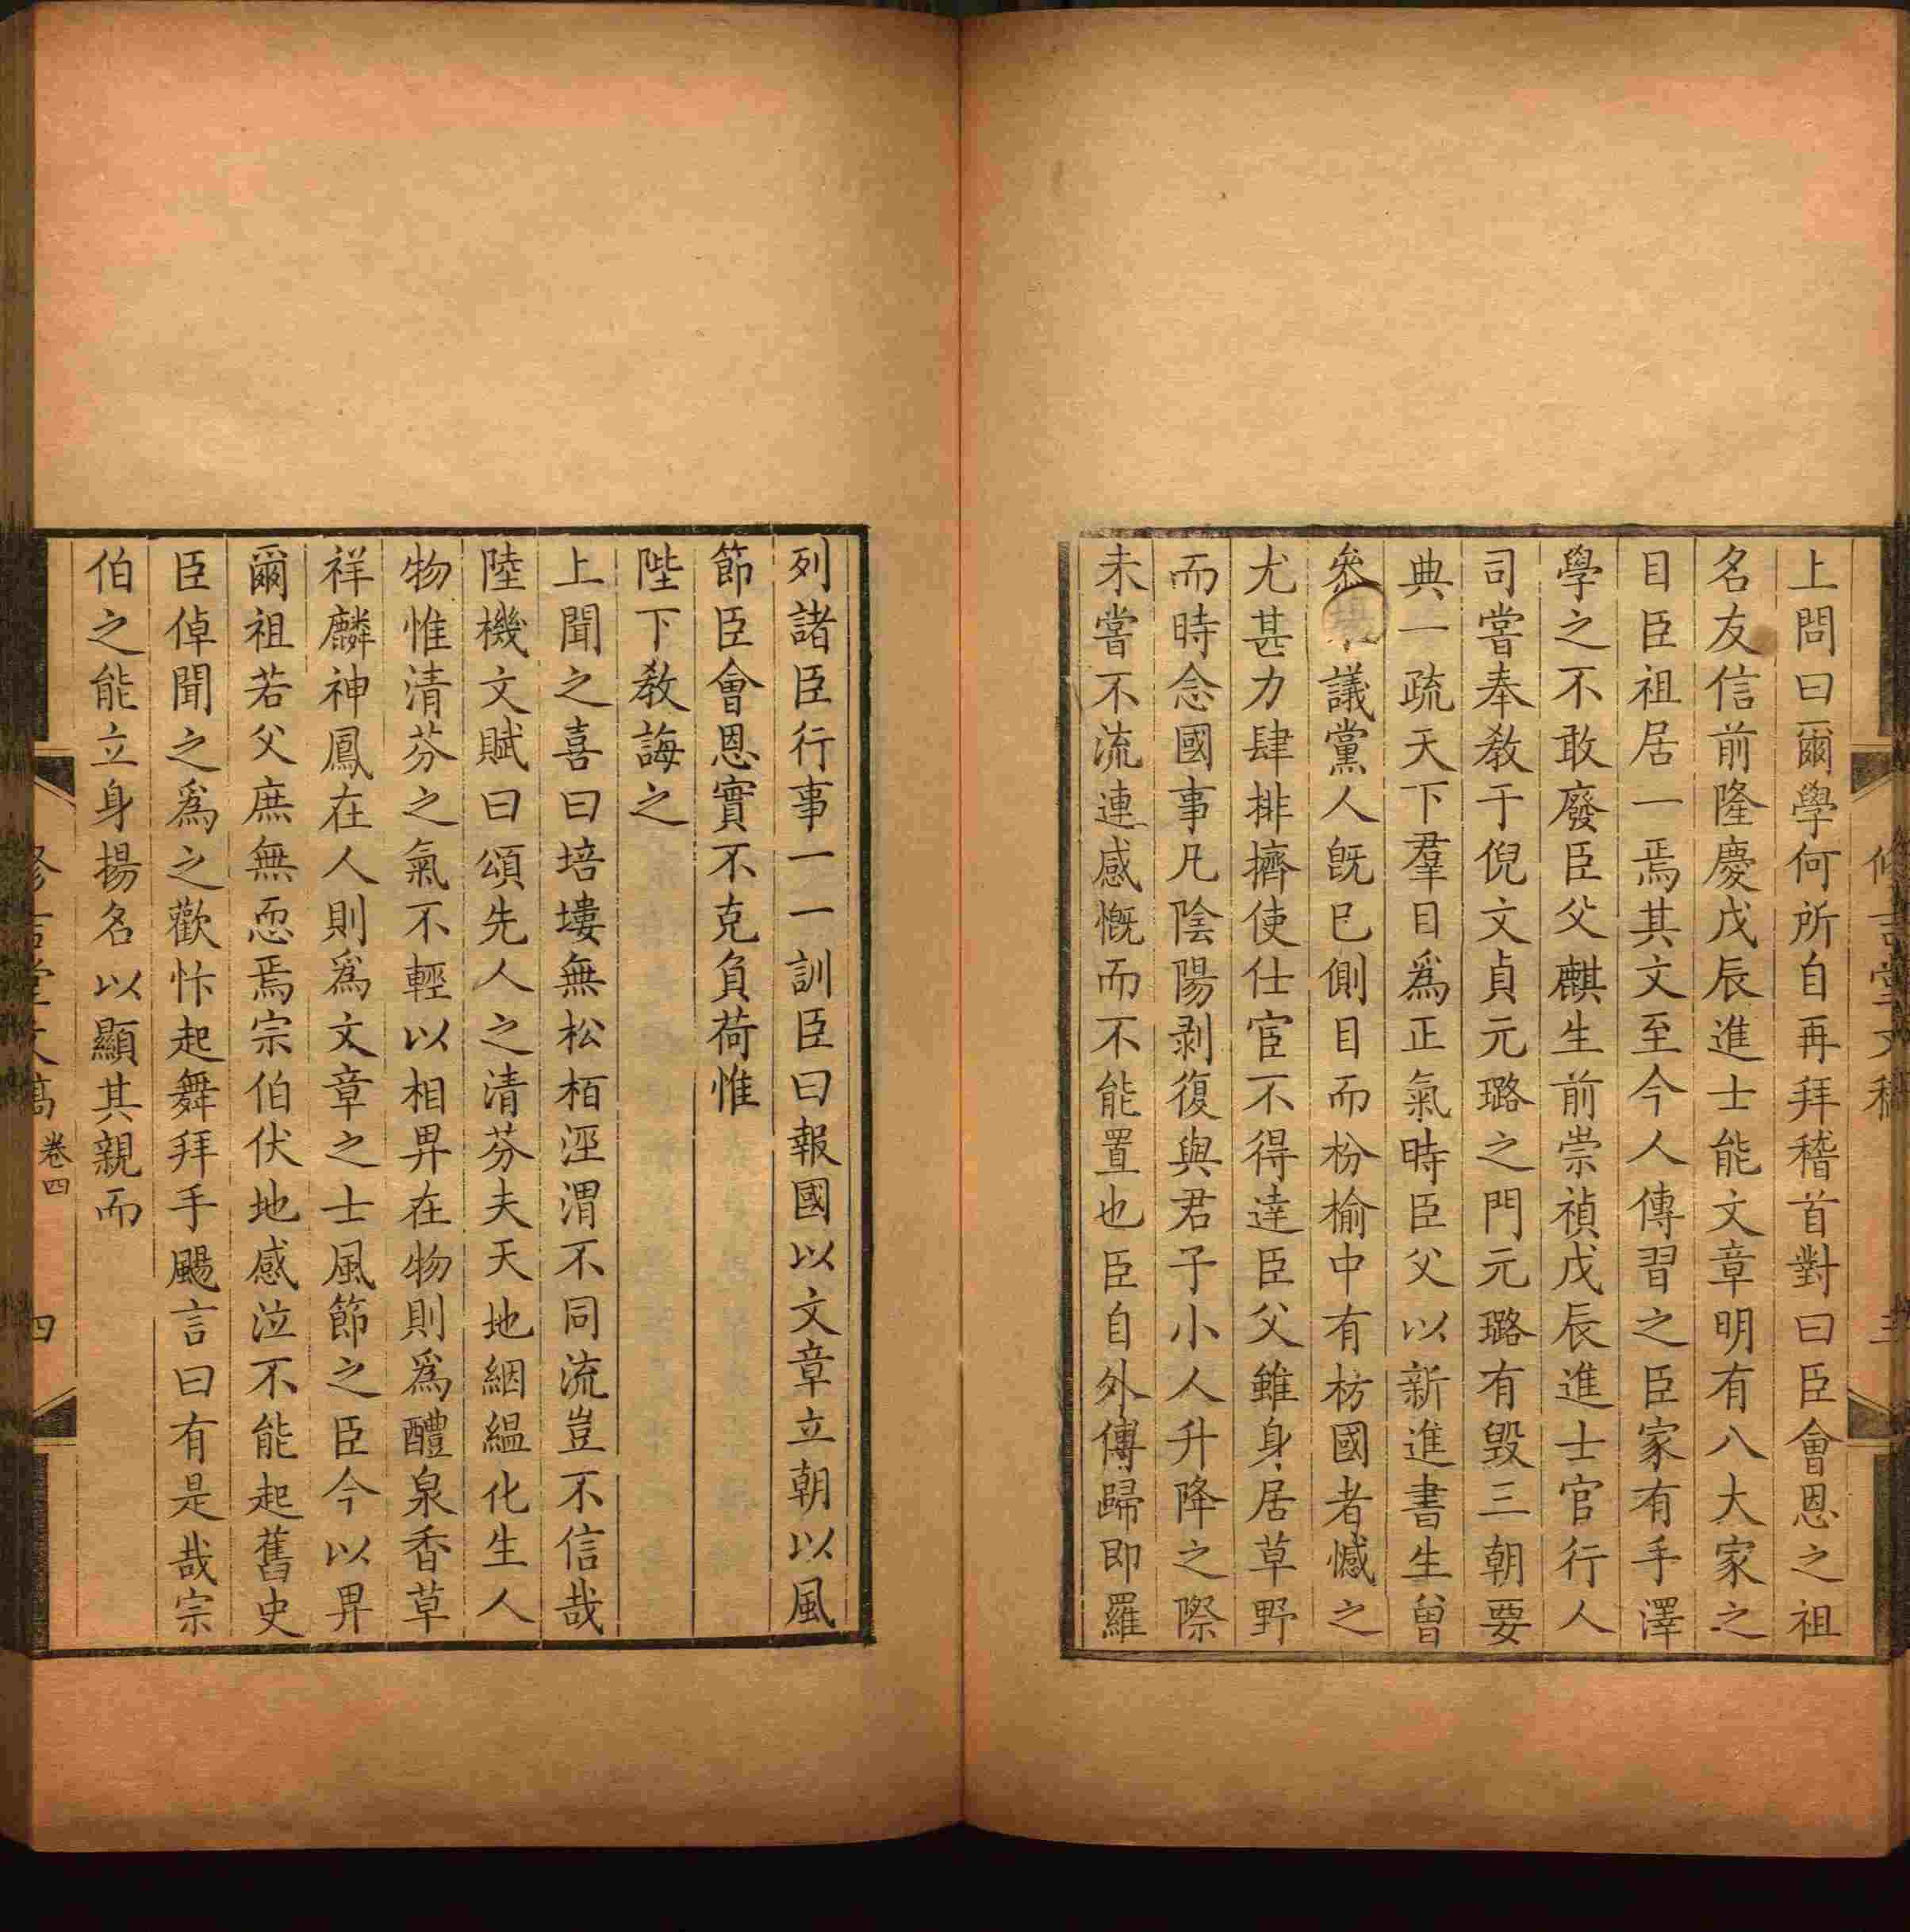 上問曰爾學何所自再拜稽首對曰臣會恩之祖
名友信前隆慶戊辰進士能文章明有八大家之
目臣祖居一焉其文至今人傳習之臣家有手澤
學之不敢廢臣父麒生前崇禎戊辰進士官行人
司嘗奉教于倪文貞元璐之門元璐有毀三朝要
典一疏天下羣目爲正氣時臣父以新進書生曾
叅議黨人旣巳側目而枌榆中有枋國者憾之
尤甚力肆排擠使仕宦不得達臣父雖身居草野
而時念國事凡陰陽剥復與君子小人升降之際
未嘗不流連感慨而不能置也臣自外傅歸即羅
列諸臣行事一一訓臣曰報國以文章立朝以風
節臣會恩實不克負荷惟
陛下教誨之
上聞之喜曰培塿無松栢涇渭不同流豈不信哉
陸機文賦曰頌先人之清芬夫天地絪緼化生人
物惟清芬之氣不輕以相畀在物則爲醴泉香草
祥麟神鳳在人則爲文章之士風節之臣今以畀
爾祖若父庶無忝焉宗伯伏地感泣不能起舊史
臣倬聞之爲之歡忭起舞拜手颺言曰有是哉宗
伯之能立身揚名以顯其親而
卷四
四